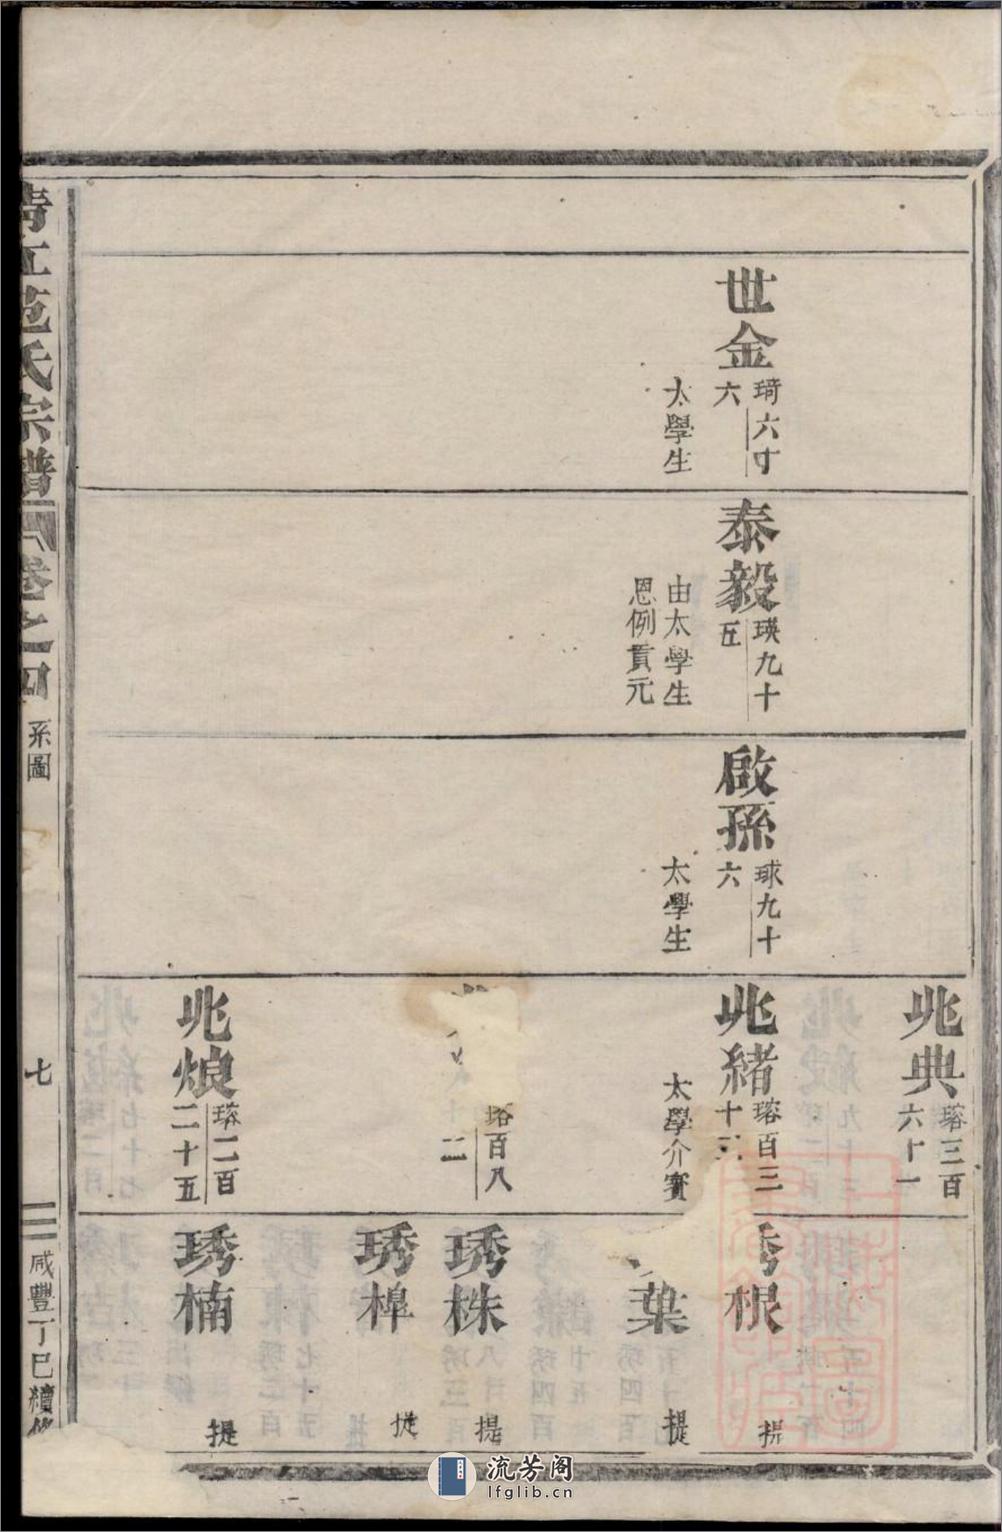 世金
琦六十
六
太學生
泰毅
瑛九十
五
由太學生
恩例貢元
啟孫
球九十
六
太學生
兆典
瑢三百
六十一
兆緒
瑢百三
十三
太學介賓
瑢百八
二
兆烺
瑢二百
二十五
秀根
提
葉
提
琇株
提
琇樟
提
琇楠
提
范氏宗譜
卷之四
系圖
七
咸豐丁巳續修
流芳阁
lfglib.cn